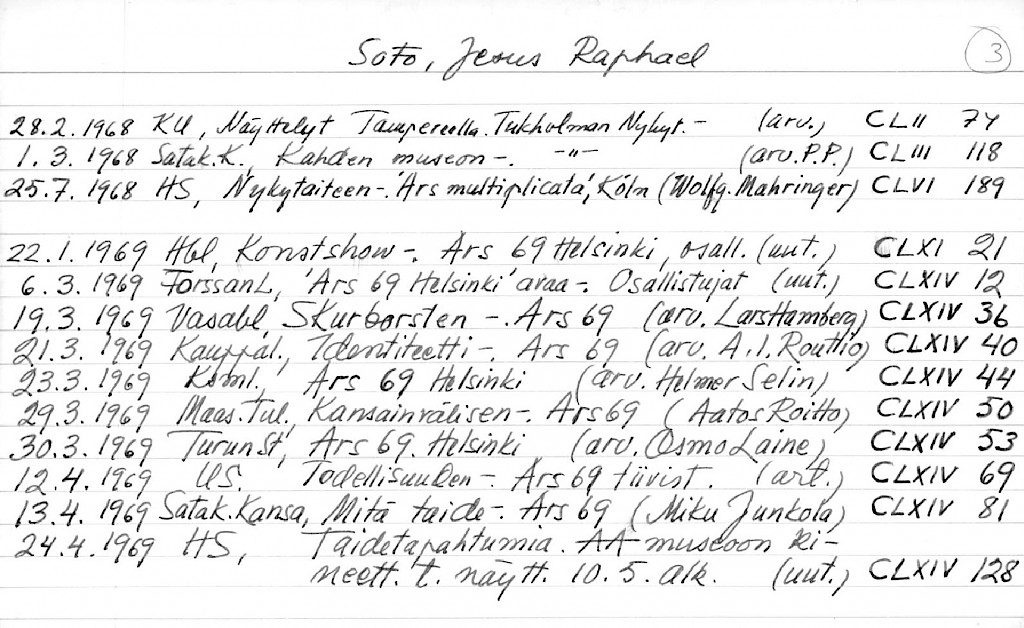 Soto, Jesus Raphael 3
28.2.1968 KU, Näyttelyt Tampereella. Tukholman Nykyt.- (arv.) CLII 74
1.3.1968 Satak.K., Kahden museon-. -"- (arv. P.P.) CLIII 118
25.7.1968 HS, Nykytaiteen-. 'Ars multiplicata', Köln (Wolfg. Mahringer) CLVI 189
22.1.1969 Hbl, Konstshow-. Ars 69 Helsinki, osall. (uut.) CLXI 21
6.3.1969 ForssanL, 'Ars 69 Helsinki' avaa-. Osallistujat (uut.) CLXIV 12
19.3.1969 Vasabl, Skurborsten -. Ars 69 (arv. Lars Hamberg) CLXIV 36
21.3.1969 Kauppal., Identiteetti-. Ars 69 (arv. A.I. Routtio) CLXIV 40
23.3.1969 Koml., Ars 69 Helsinki (arv. Helmer Selin) CLXIV 44
29.3.1969 Maas.Tul, Kansainvälisen-. Ars 69 (Aatos Roitto) CLXIV 50
30.3.1969 TurunSt, Ars 69. Helsinki (arv. Osmo Laine) CLXIV 53
12.4.1969 US. Todellisuuden-. Ars 69 tiivist. (art.) CLXIV 69
13.4.1969 Satak.Kansa, Mitä taide-. Ars 69 (Miku Junkola) CLXIV 81
24.4.1969 HS, Taidetapahtumia. AA museoon ki-
neett. t. näytt. 10.5. alk. (uut.) CLXIV 128